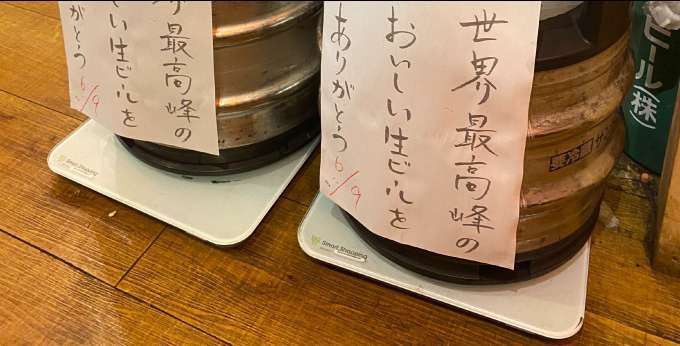 最高峰の
い生ビールを
がとう
6/9
Smart Shopping
世界最高峰の
おいしい生ビールを
ありがとう
6/9
Smart Shopping
要冷蔵
ビール(株)